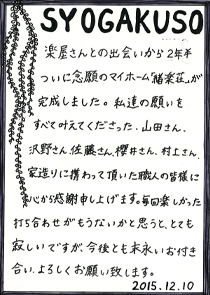 SYOGAKUSO
楽屋さんとの出会いから2年半
ついに念願のマイホーム「翛楽荘」が
完成しました。私達の願いを
すべて叶えてくださった、山田さん、
沢野さん、佐藤さん、櫻井さん、村上さん、
家造りに携わって頂いた職人の皆様に
心から感謝申し上げます。毎回楽しかった
打ち合わせがもうないかと思うと、とても
寂しいですが、今後とも末永いお付き
合い、よろしくお願い致します。
2015.12.10